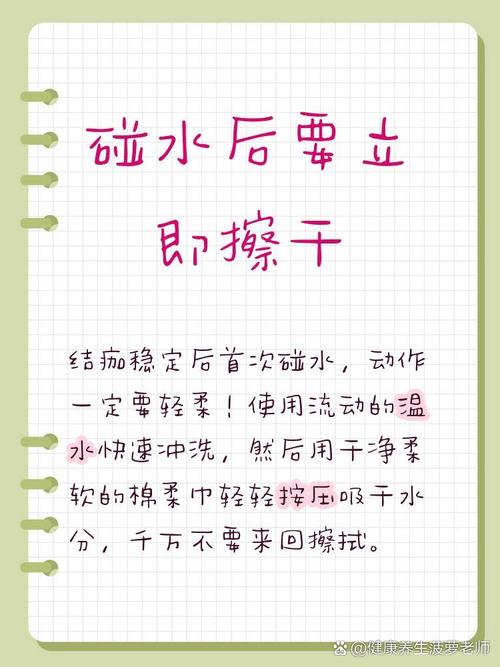 碰水后要立
即擦干
结痂稳定后首次碰水，动作
一定要轻柔！使用流动的温
水快速冲洗，然后用干净柔
软的棉柔巾轻轻按压吸干水
分，千万不要来回擦拭。
健康养生菠萝老师